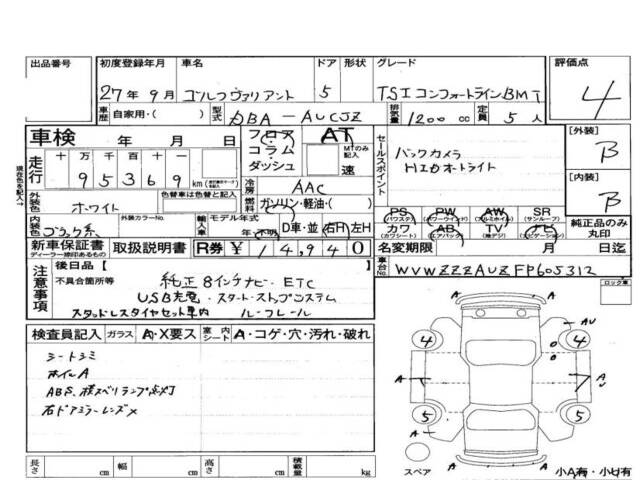 出品番号 初度登録年月 車名 ドア 形状 グレード 評価点
27年9月 ゴルフヴァリアント 5 TSIコンフォートラインBMT 4
車歴 自家用・( ) 型式 DBA-AUCJZ 排気量 1200cc 定員 5人
車検 年 月 日 フロア コラム ダッシュ AT MTのみ記入 速
走行 十 万 千 百 十 一
95369 km
セールスポイント
バックカメラ
HIDオートライト
[外装] B
[内装] B
現在色を記入
外装色 ホワイト 色替車は色替と記入
冷房 AAC
燃料 ガソリン・軽油・( )
内装色 ブラック系 外装カラーNo. 輸入車 モデル年式 年・不明 D車・並 右H 左H
PS (パワステ) PW (パワーウインド) AW (アルミホイル) SR (サンルーフ)
カワ (カワシート) AB (エアバック) TV (地デジ) ナビ (ナビゲーション)
純正品のみ丸印
新車保証書 ディーラー捺印あるもの 取扱説明書 R券 ¥14,940
名変期限 月 日迄
車台No. WVWZZZAUZFP605312
注意事項 後日品【 】
不具合箇所等 純正8インチナビ ETC
USB充電・スタートストップシステム
スタッドレスタイヤセット車内 ルーフレール
ロック車
検査員記入 ガラス A・X要ス 室内シート A・コゲ・穴・汚れ・破れ
シートシミ
ホイルA
ABS、横スベリランプ点灯
右ドアミラーレンズ×
A AU
4 4
A A
5 5
A A
A
スペア 小A有・小U有
長さ cm 幅 cm 高さ cm 積載量 kg